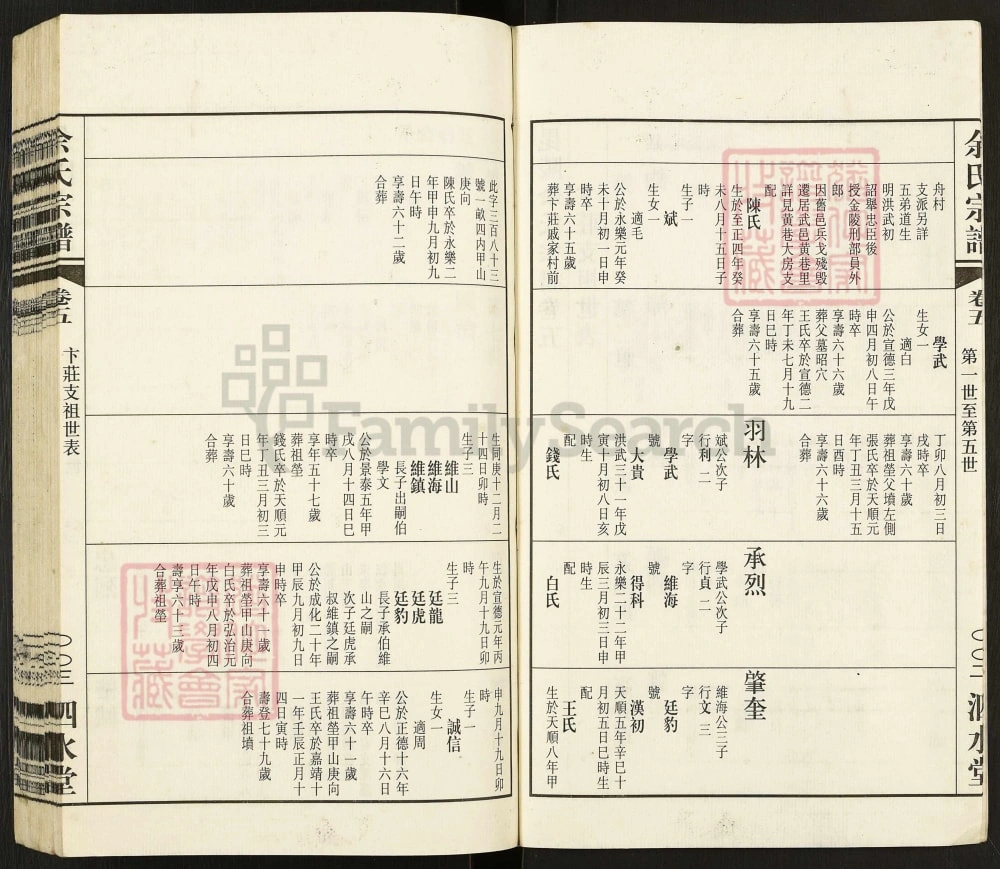 余氏宗譜
卷五
第一世至第五世
泗水堂
舟村
支派另詳
五弟道生
明洪武初
詔舉忠臣後
授金陵刑部員外
郎
因舊邑兵戈殘毀
還居武邑黃巷里
詳見黃巷大房支
配
陳氏
生於至正四年癸
未八月十五日子
時
生子一
斌
生女一
適毛
公於永樂元年癸
未十月初一日申
時卒
享壽六十五歲
葬卞莊戚家村前
學武
生女一
適白
公於宣德三年戊
申四月初八日午
時卒
享壽六十六歲
葬父墓昭穴
王氏卒於宣德二
年丁未七月十九
日巳時
享壽六十五歲
合葬
丁卯八月初三日
戌時卒
享壽六十歲
葬祖塋父墳左側
張氏卒於天順元
年丁丑三月十五
日酉時
享壽六十六歲
合葬
羽林
斌公次子
行利 二
字
學武
號
大貴
洪武三十一年戊
寅十月初八日亥
時生
配
錢氏
承烈
學武公次子
行貞 二
字
維海
號
得科
永樂二十二年甲
辰三月初三日申
時生
配
白氏
肇奎
維海公三子
行文 三
字
廷豹
號
漢初
天順五年辛巳十
月初五日巳時生
配
王氏
生於天順八年甲
此字三百八十三
號一畝四內甲山
庚向
陳氏卒於永樂二
年甲申九月初九
日午時
享壽六十二歲
合葬
生同庚十二月二
十四日卯時
生子三
維山
維海
維鎮
長子出嗣伯
學文
公於景泰五年甲
戌八月十四日巳
時卒
享年五十七歲
葬祖塋
錢氏卒於天順元
年丁丑三月初三
日巳時
享壽六十歲
合葬
生於宣德元年丙
午九月十九日卯
時
生子三
廷龍
廷虎
廷豹
長子承伯維
山之嗣
次子廷虎承
叔維鎮之嗣
公於成化二十年
甲辰九月初九日
申時卒
享壽六十一歲
葬祖塋甲山庚向
白氏卒於弘治元
年戊申八月初四
日午時
壽享六十三歲
合葬祖塋
申九月十九日卯
時
生子一
誠信
生女一
適周
公於正德十六年
辛巳八月十六日
午時卒
享壽六十一歲
葬祖塋甲山庚向
王氏卒於嘉靖十
一年壬辰正月十
四日寅時
壽登七十九歲
合葬祖墳
余氏宗譜
卷五
卞莊支祖世表
〇〇三
泗水堂
FamilySearch